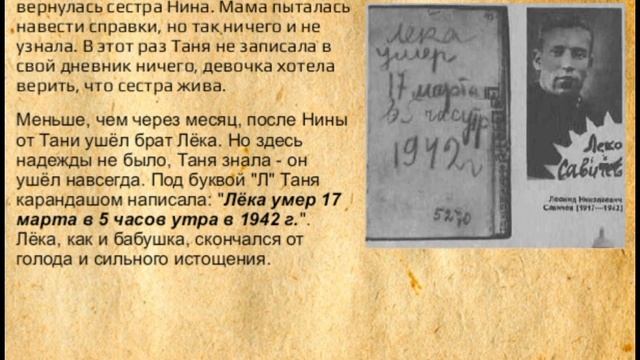 вернулась сестра Нина. Мама пыталась
навести справки, но так ничего и не
узнала. В этот раз Таня не записала в
свой дневник ничего, девочка хотела
верить, что сестра жива.
Меньше, чем через месяц, после Нины
от Тани ушёл брат Лёка. Но здесь
надежды не было, Таня знала - он
ушёл навсегда. Под буквой "Л" Таня
карандашом написала: "Лёка умер 17
марта в 5 часов утра в 1942 г.".
Лёка, как и бабушка, скончался от
голода и сильного истощения.
Лека
умер
17 марта
в 5 часутр
1942 г
Леко
Савичев
Леонид Николаевич
Савичев (1917—1942)